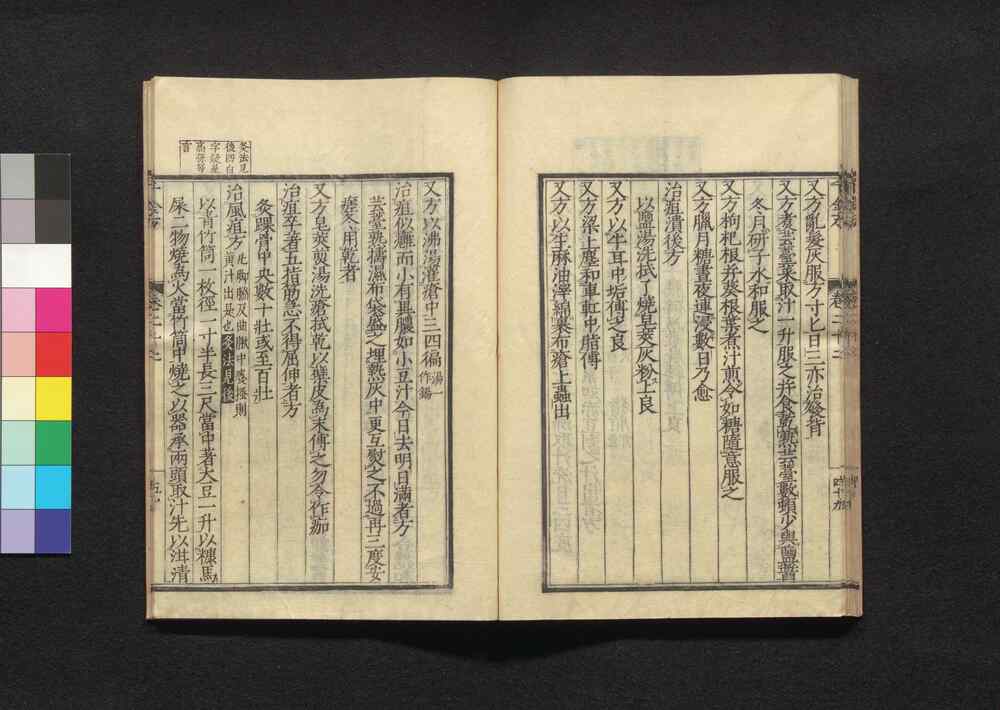 又方亂髮灰服方寸匕日三亦治發背
又方煮芸薹葉取汁一升服之并食乾熟芸薹數頓少與鹽醬
冬月研子水和服之
又方枸杞根并葵根葉煮汁煎令如糖隨意服之
又方臘月糖晝夜連浸數日乃愈
治疽潰後方
以鹽湯洗拭了燒皂莢灰粉上良
又方以牛耳中垢傅之良
又方梁上塵和車釭中脂傅
又方以生麻油滓綿裹布瘡上蟲出
又方以沸湯灌瘡中三四徧湯一作鍚
治疽似癰而小有異膿如小豆汁今日去明日滿者方
芸薹熟擣濕布袋盛之埋熱灰中更互熨之不過再三度安
無冬用乾者
又方皂莢煎湯洗瘡拭乾以蘗皮為末傅之勿令作痂
治疽卒著五指筋急不得屈伸者方
灸踝骨中央數十壯或至百壯
治風疽方
灸法見後
以青竹筒一枚徑一寸半長三尺當中著大豆一升以糠馬
屎二物燒為火當竹筒中燒之以器承兩頭取汁先以泔清
灸法見後四白字